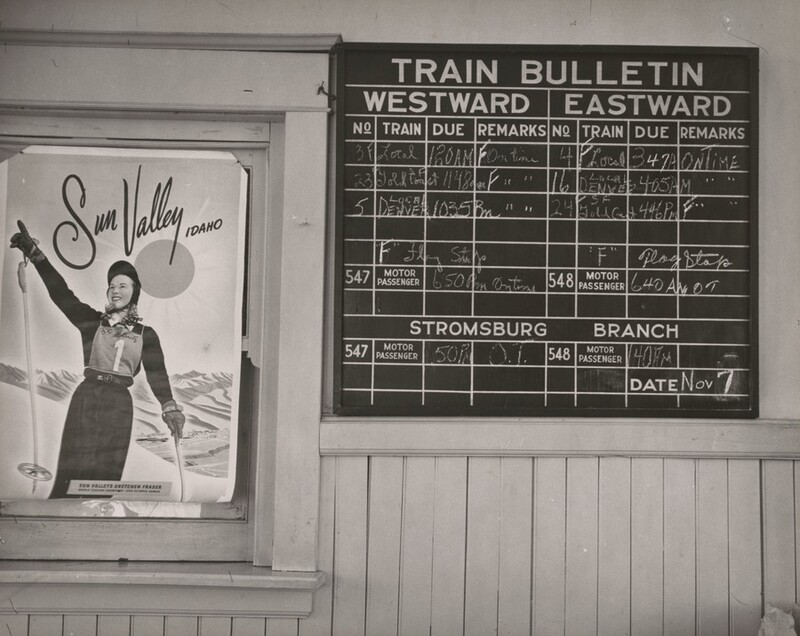 Sun Valley
IDAHO
1
SUN VALLEY'S GRETCHEN FRASER
TRAIN BULLETIN
WESTWARD EASTWARD
NO TRAIN DUE REMARKS NO TRAIN DUE REMARKS
Local 120AM F On time 4 F Local 347A ONTIME
23 Gold Coast 1148 F " " 16 LOCAL DENVER 405AM " "
5 LOCAL DENVER 1035Pm " " 24 SF Gold Cst 446PM F " "
"F" Flag Stop "F" Flag Stop
547 MOTOR PASSENGER 650Pm Ontime 548 MOTOR PASSENGER 640A OT
STROMSBURG BRANCH
547 MOTOR PASSENGER O.T. 548 MOTOR PASSENGER
DATE Nov 7